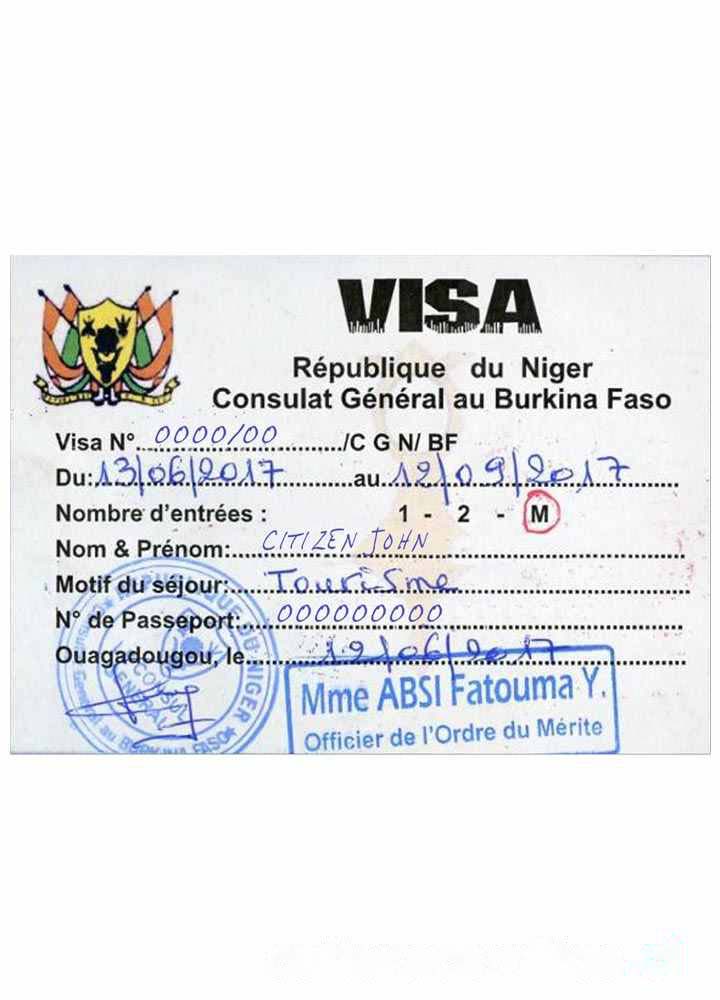 VISA
République du Niger
Consulat Général au Burkina Faso
Visa N° 0000/00 /C G N/ BF
Du: 13/06/2017 au 12/09/2017
Nombre d'entrées : 1 - 2 - M
Nom & Prénom: CITIZEN JOHN
Motif du séjour: Tourisme
N° de Passeport: 000000000
Ouagadougou, le 12/06/2017
Mme ABSI Fatouma Y.
Officier de l'Ordre du Mérite
RÉPUBLIQUE DU NIGER
Consulat Général au BURKINA FASO
CONSUL
GENERAL